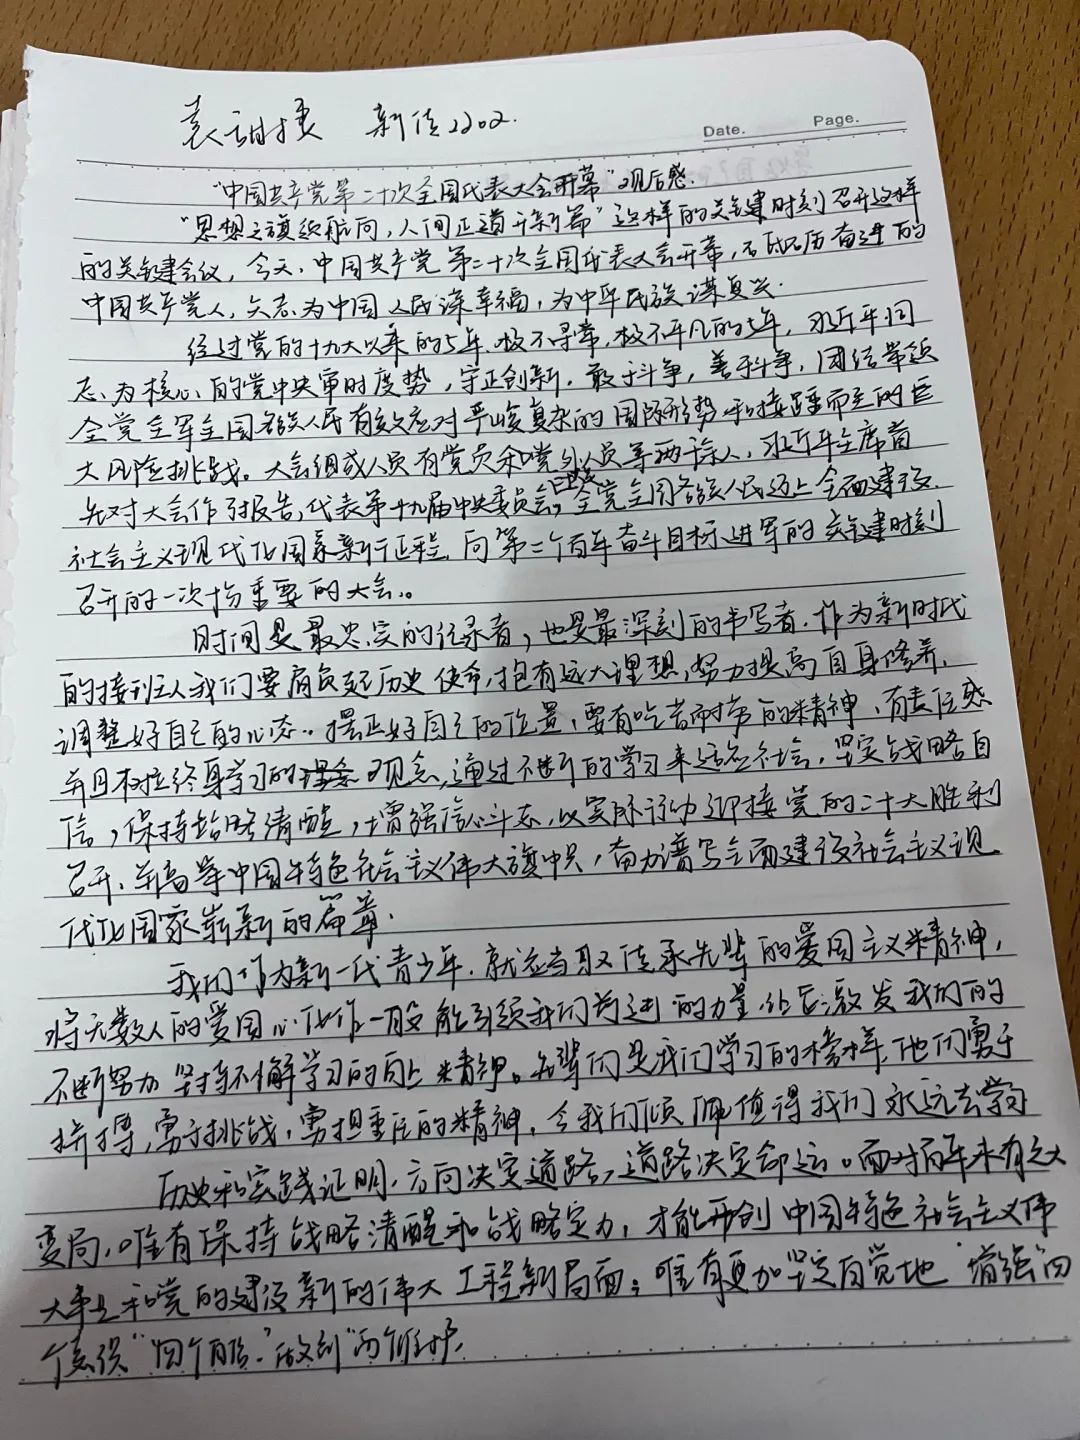 袁甜 新传2202.
Date. Page.
"中国共产党第二十次全国代表大会开幕"观后感.
"思想之旗领航向,人间正道开新篇"这样的关键时刻召开这样
的关键会议,今天,中国共产党第二十次全国代表大会开幕,百战历奋进的
中国共产党人,矢志为中国人民谋幸福,为中华民族谋复兴.
经过党的十九大以来的5年、极不寻常,极不平凡的5年,习近平同
志、为核心的党中央审时度势,守正创新,敢于斗争,善于斗争,团结带领
全党全军全国各族人民有效应对严峻复杂的国际形势和接踵而至的巨
大风险挑战。大会组成人员有党员和党外人员等两千余人,习近平主席首
先对大会作了报告,代表第十九届中央委员会,是在全党全国各族人民迈上全面建设
社会主义现代化国家新征程、向第二个百年奋斗目标进军的关键时刻
召开的一次十分重要的大会。
时间是最忠实的记录者,也是最深刻的书写者.作为新时代
的接班人我们要肩负起历史使命,抱有远大理想,努力提高自身修养,
调整好自己的心态.摆正好自己的位置,要有吃苦耐劳的精神、有责任感
并且树立终身学习的观念,通过不断的学习来适应社会,坚定战略自
信,保持战略清醒,增强信心斗志,以实际行动迎接党的二十大胜利
召开、并高举中国特色社会主义伟大旗,奋力谱写全面建设社会主义现
代化国家崭新的篇章.
我们作为新一代青少年,就应当传承先辈的爱国主义精神,
将无数人的爱国心化作一股能引领我们前进的力量,让它激发我们的
不断努力坚持不懈学习的向上精神。先辈们是我们学习的榜样,他们勇于
拼搏,勇于挑战,勇担重任的精神,令我们倾佩值得我们永远去学习
历史和实践证明,方向决定道路,道路决定命运。面对百年未有之大
变局,唯有保持战略清醒和战略定力,才能开创中国特色社会主义伟
大事业和党的建设新的伟大工程新局面;唯有更加坚定自觉地"增强"四
个意识"四个自信"做到"两个维护.